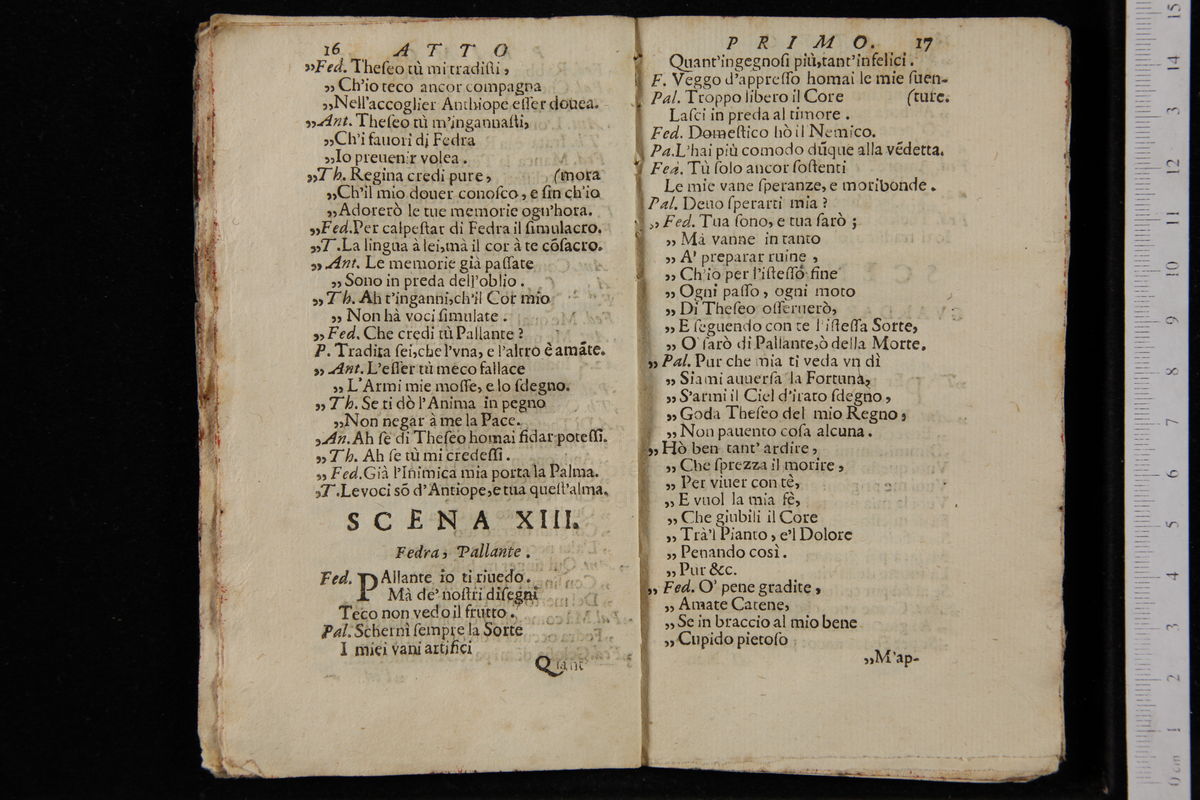 16 ATTO
„Fed. Theſeo tù mi tradiſti,
„ Ch'io teco ancor compagna
„Nell'accoglier Anthiope eſſer douea.
„Ant. Theſeo tù m'ingannaſti,
„Ch'i fauori di Fedra
„Io preuenir volea.
„Th. Regina credi pure, (mora
„Ch'il mio douer conoſco, e ſin ch'io
„Adorerò le tue memorie ogn'hora.
„Fed.Per calpeſtar di Fedra il ſimulacro.
„T.La lingua à lei,mà il cor à te cõſacro.
„Ant. Le memorie già paſſate
„ Sono in preda dell'oblio.
„Th. Ah t'inganni,ch'il Cor mio
„ Non hà voci ſimulate.
„Fed. Che credi tù Pallante?
P. Tradita ſei,che l'vna, e l'altro è amãte.
„Ant. L'eſſer tù meco fallace
„ L'Armi mie moſſe, e lo ſdegno.
„Th. Se ti dò l'Anima in pegno
„Non negar à me la Pace.
„An. Ah ſe di Theſeo homai fidar poteſſi.
„Th. Ah ſe tù mi credeſſi.
„ Fed.Già l'Inimica mia porta la Palma.
„T.Le voci sõ d'Antiope,e tua queſt'alma.
SCENA XIII.
Fedra, Pallante.
Fed. PAllante io ti riuedo.
Mà de' noſtri diſegni
Teco non vedo il frutto.
Pal. Scherni ſempre la Sorte
I miei vani artifici
Quant'
PRIMO. 17
Quant'ingegnoſi più,tant'infelici.
F. Veggo d'appreſſo homai le mie ſuen-
Pal. Troppo libero il Core (ture.
Laſci in preda al timore.
Fed. Domeſtico hò il Nemico.
Pa.L'hai più comodo dũque alla vẽdetta.
Fed. Tù ſolo ancor ſoſtenti
Le mie vane ſperanze, e moribonde.
Pal. Deuo ſperarti mia?
„ Fed. Tua ſono, e tua ſarò;
„ Mà vanne in tanto
„ A' preparar ruine,
„ Ch'io per l'iſteſſo fine
„ Ogni paſſo, ogni moto
„ Di Theſeo oſſeruerò,
„ E ſeguendo con te l'iſteſſa Sorte,
„ O ſarò di Pallante,ò della Morte.
„ Pal. Pur che mia ti veda vn dì
„ Siami auuerſa la Fortuna,
„ S'armi il Ciel d'irato ſdegno,
„ Goda Theſeo del mio Regno,
„ Non pauento coſa alcuna.
„ Hò ben tant' ardire,
„ Che ſprezza il morire,
„ Per viuer con tè,
„ E vuol la mia fè,
„ Che giubili il Core
„ Trà'l Pianto, e'l Dolore
„ Penando così.
„ Pur &c.
„ Fed. O' pene gradite,
„ Amate Catene,
„ Se in braccio al mio bene
„ Cupido pietoſo
„M'ap-